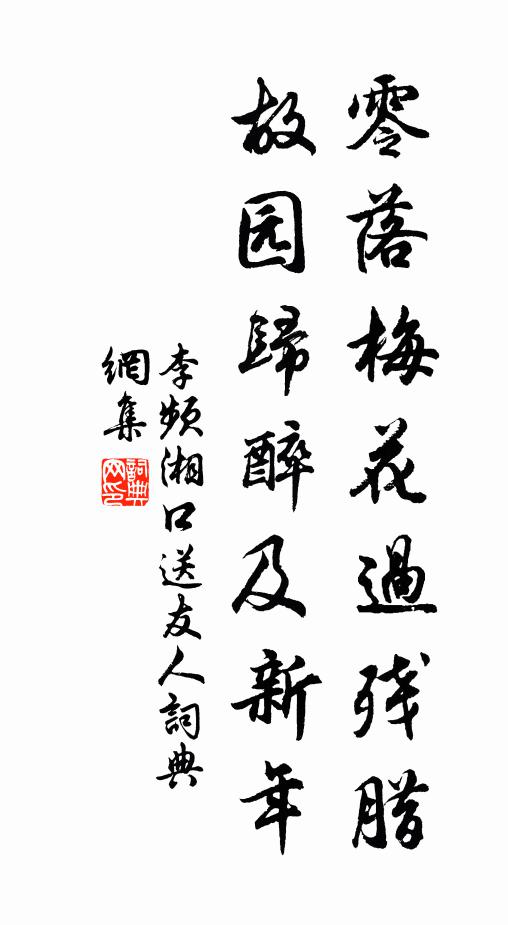 零落梅花過残腊
故园歸醉及新年
李频湘口送友人詞典
網集
詞典网印